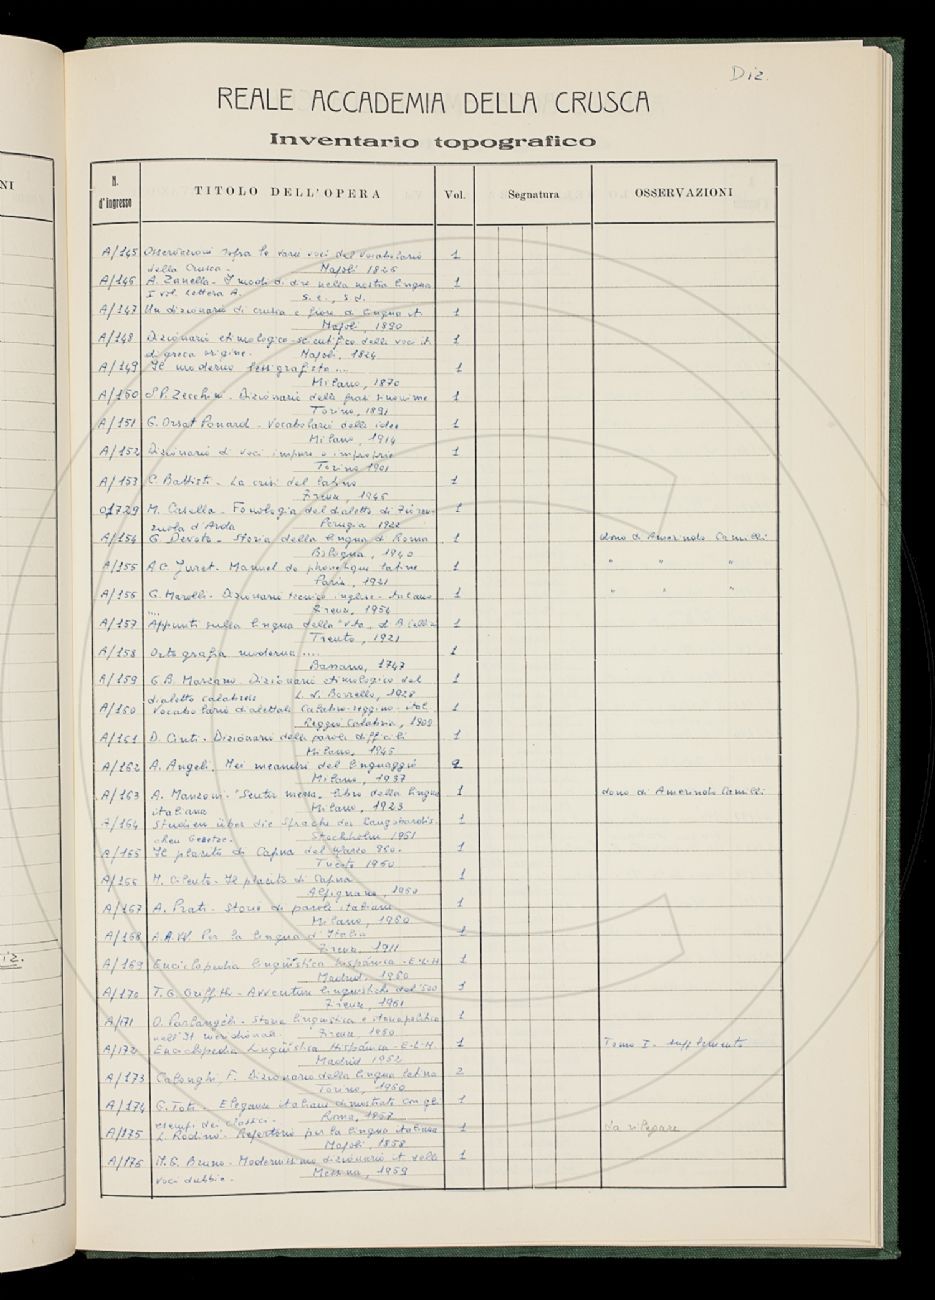 NI
Diz.
REALE ACCADEMIA DELLA CRUSCA
Inventario topografico
N. d'ingresso TITOLO DELL'OPERA Vol. Segnatura OSSERVAZIONI
A/145 Osservazioni sopra le varie voci del Vocabolario 1
della Crusca. Napoli 1826
A/146 A. Zanella - I modi di dire nella nostra lingua 1
I vol. lettera A. s. e., s. d.
A/147 Un dizionario di crusca e fiore di lingua it. 1
Napoli, 1890
A/148 Dizionario etimologico-scientifico delle voci it. 1
di greca origine. Napoli, 1824
A/149 Il moderno lessigrafista .... 1
Milano, 1870
A/150 S.P. Zecchini - Dizionario delle frasi sinonime 1
Torino, 1891
A/151 G. Orsat Ponard - Vocabolario delle idee 1
Milano, 1914
A/152 Dizionario di voci impure o improprie 1
Torino 1901
A/153 C. Battisti - La crisi del latino 1
Firenze, 1946
01729 M. Casella - Fonologia del dialetto di Fioren- 1
zuola d'Arda Perugia 1922
A/154 G. Devoto - Storia della lingua di Roma 1 dono di Amerindo Camilli
Bologna, 1940
A/155 A.C. Juret. Manuel de phonétique latine 1 " " "
Paris, 1921
A/156 G. Marolli - Dizionario tecnico inglese-italiano 1 " " "
.... Firenze, 1954
A/157 Appunti sulla lingua della "Vita" di B. Cellini 1
Trento, 1921
A/158 Ortografia moderna .... 1
Bassano, 1747
A/159 G.B. Marzano. Dizionario etimologico del 1
dialetto calabrese L. di Borrello, 1928
A/160 Vocabolario dialettale Calabro-reggino-ital. 1
Reggio Calabria, 1909
A/161 D. Cinti - Dizionario delle parole difficili 1
Milano, 1946
A/162 A. Angeli. Nei meandri del linguaggio 2
Milano, 1937
A/163 A. Manzoni - "Sentir messa" libro della lingua 1 dono di Amerindo Camilli
italiana Milano, 1923
A/164 Studien über die Sprache der Langobardis- 1
chen Gesetze. Stockholm 1951
A/165 Il placito di Capua del marzo 960. 1
Trento 1960
A/166 M. Cilento - Il placito di Capua 1
1960
A/167 A. Prati - Storie di parole italiane 1
Milano, 1960
A/168 A.A.VV. Per la lingua d'Italia 1
Firenze, 1911
A/169 Enciclopedia lingüistica hispánica - E-L-H 1
Madrid, 1960
A/170 T.G. Griffith - Avventure linguistiche del '500 1
Firenze, 1961
A/171 O. Parlangèli - Storia linguistica e storia politica 1
nell'It. meridionale. Firenze, 1960
A/172 Enciclopedia Lingüística Hispánica - E-L-H. 1 Tomo I - supplemento
Madrid 1962
A/173 Calonghi, F. Dizionario della lingua latina 2
Torino, 1960
A/174 G. Toti - Eleganze italiane dimostrate con gli 1
esempi dei classici. Roma, 1957
A/175 L. Rodinò - Repertorio per la lingua italiana 1 da rilegare
Napoli, 1858
A/176 M.G. Bruno - Modernissimo dizionario it. delle 1
voci dubbie. Messina, 1959
iz.